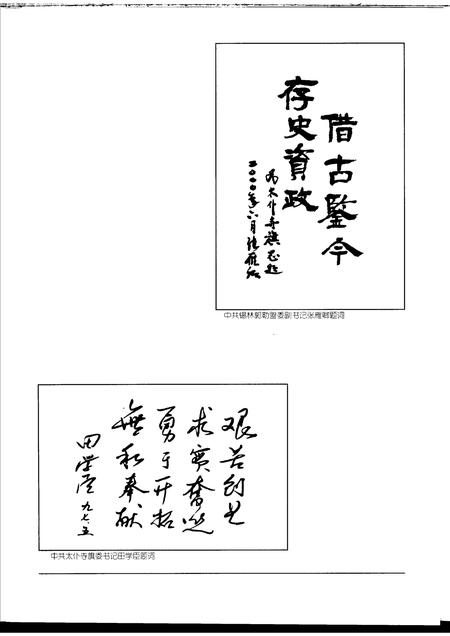 借古鑒今
存史資政
为太仆寺旗志题
二〇〇〇年六月 张雁
中共锡林郭勒盟委副书记张雁题词
艰苦创业
求實奮進
勇于开拓
無私奉献
田学臣 九七.五
中共太仆寺旗委书记田学臣题词